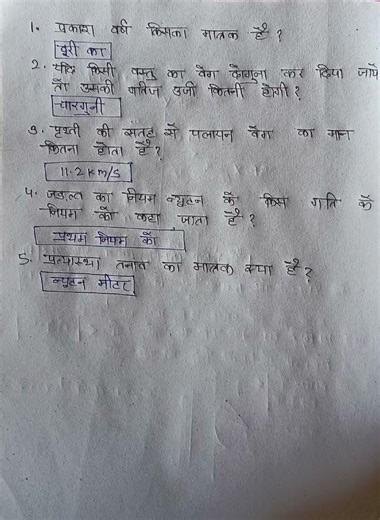 1. प्रकाश वर्ष किसका मात्रक है ?
दूरी का
2. यदि किसी वस्तु का वेग दोगुना कर दिया जाये
तो उसकी गतिज उर्जा कितनी होगी ?
चारगुनी
3. पृथ्वी की सतह से पलायन वेग का मान
कितना होता है ?
11.2 KM/S
4. जड़त्व का नियम न्यूटन के किस गति के
नियम को कहा जाता है ?
प्रथम नियम को
5. प्रत्यास्था तनाव का मात्रक क्या है ?
न्यूटन मीटर